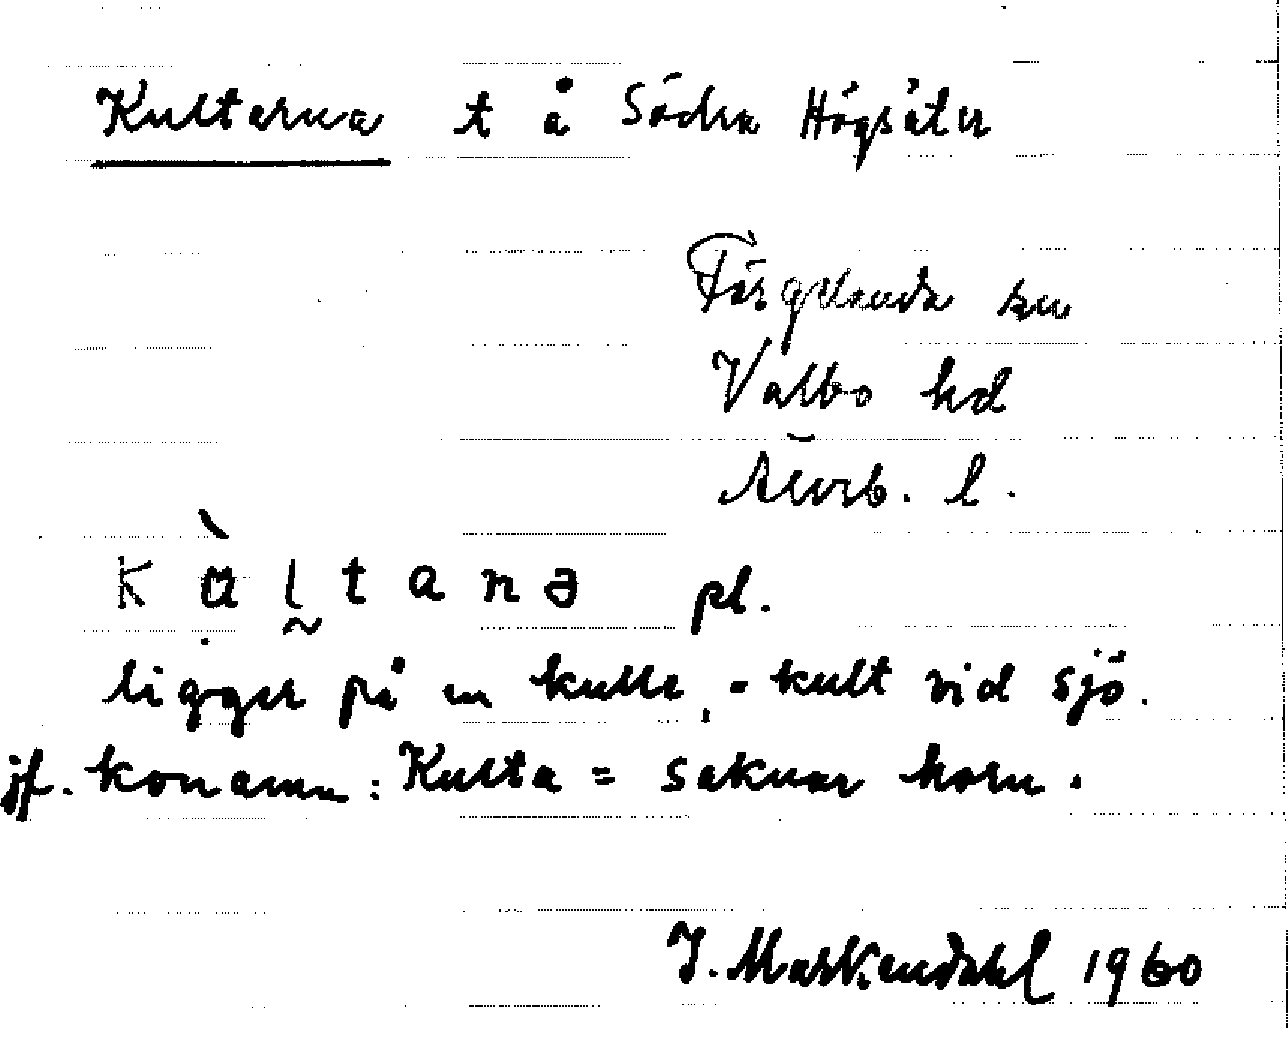 Kulterna t å Södra Högsäter
Färgelanda sn
Valbo hd
Älvsb. l.
k ù l t a n ə pl.
ligger på en kulle, - kult vid sjö.
jf. konamn: Kulta = saknar horn.
J. Markendahl 1960